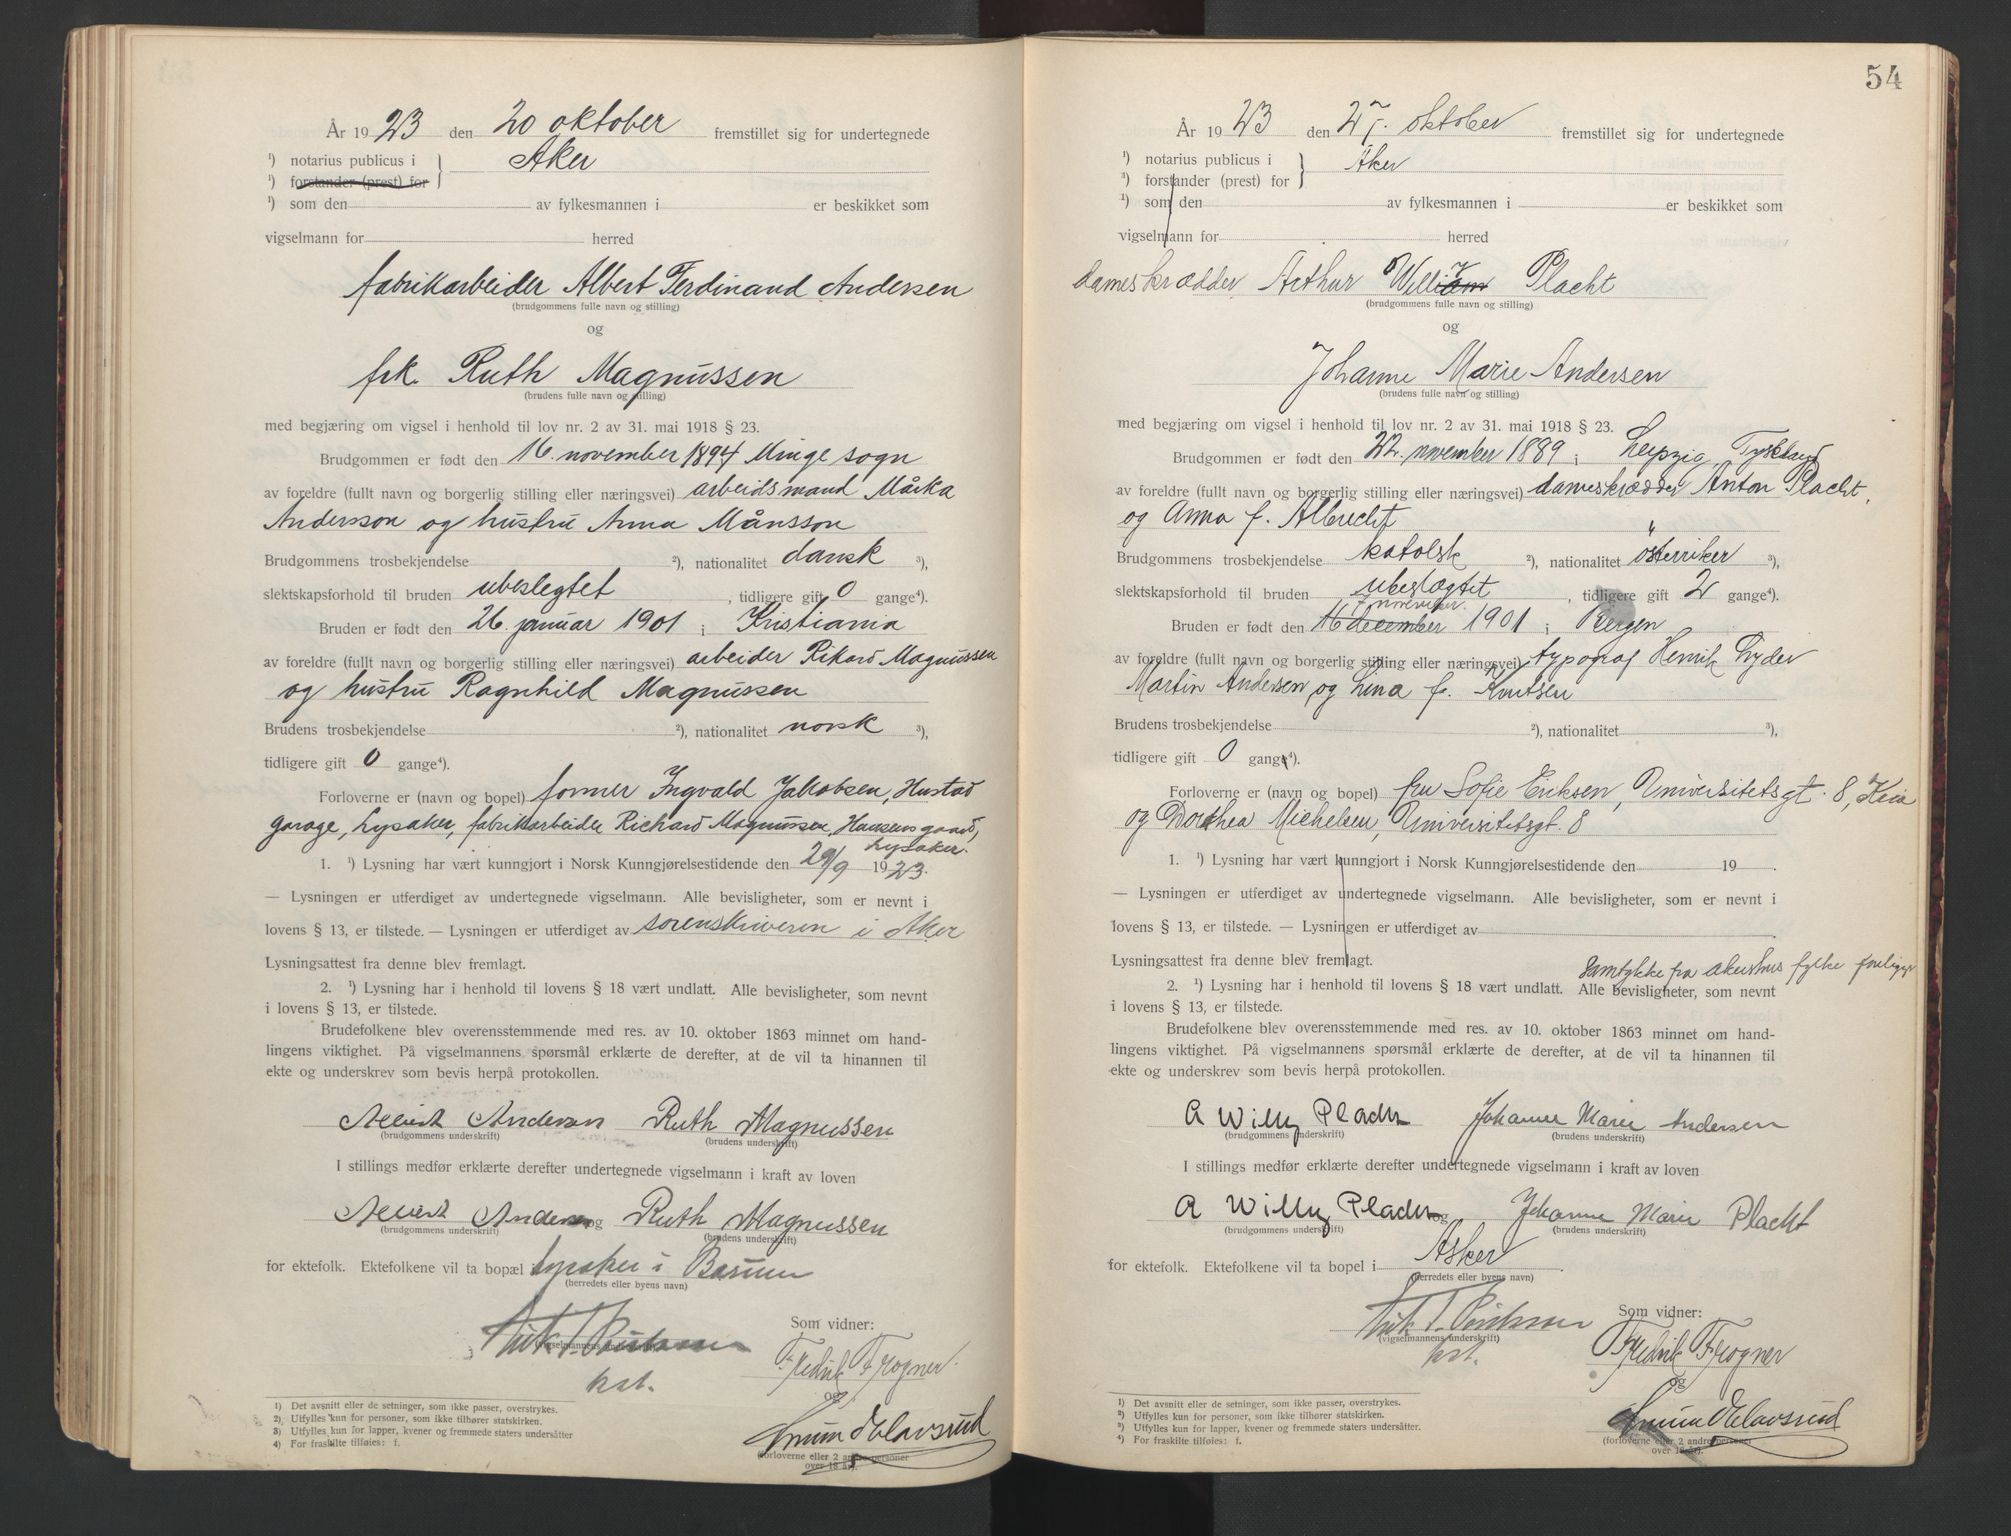 År 19 23 den 20 oktober fremstillet sig for undertegnede
¹) notarius publicus i } Aker
¹) forstander (prest) for
¹) som den av fylkesmannen i er beskikket som
vigselmann for herred
fabrikarbeider Albert Ferdinand Andersen
(brudgommens fulle navn og stilling)
og
frk. Ruth Magnussen
(brudens fulle navn og stilling)
med begjæring om vigsel i henhold til lov nr. 2 av 31. mai 1918 § 23.
Brudgommen er født den 16. november 1894 Minge sogn
av foreldre (fullt navn og borgerlig stilling eller næringsvei) arbeidsmand
Andersson og hustru Anna Månsson
Brudgommens trosbekjendelse ²), nationalitet dansk ³),
slektskapsforhold til bruden ubeslegtet, tidligere gift 0 gange⁴).
Bruden er født den 26. januar 1901 i Kristiania
av foreldre (fullt navn og borgerlig stilling eller næringsvei) arbeider Rikard Magnussen
og hustru Ragnhild Magnussen
Brudens trosbekjendelse ²), nationalitet norsk ³),
tidligere gift 0 gange⁴).
Forloverne er (navn og bopel) former Ingvald Jakobsen, Hustad
garage, Lysaker, fabrikarbeider Richard Magnussen, Hansens gaard,
Lysaker.
1. ¹) Lysning har vært kunngjort i Norsk Kunngjørelsestidende den 29/9 1923.
— Lysningen er utferdiget av undertegnede vigselmann. Alle bevisligheter, som er nevnt i
lovens § 13, er tilstede. — Lysningen er utferdiget av sorenskriveren i Aker
Lysningsattest fra denne blev fremlagt.
2. ¹) Lysning har i henhold til lovens § 18 vært undlatt. Alle bevisligheter, som nevnt
i lovens § 13, er tilstede.
Brudefolkene blev overensstemmende med res. av 10. oktober 1863 minnet om hand-
lingens viktighet. På vigselmannens spørsmål erklærte de derefter, at de vil ta hinannen til
ekte og underskrev som bevis herpå protokollen.
Albert Andersen Ruth Magnussen
(brudgommens underskrift) (brudens underskrift)
I stillings medfør erklærte derefter undertegnede vigselmann i kraft av loven
Albert Andersen og Ruth Magnussen
(brudgommens underskrift) (brudens underskrift)
for ektefolk. Ektefolkene vil ta bopæl i Lysaker i Bærum
(herredets eller byens navn)
Som vidner:
(vigselmannens underskrift)
Fredrik Frogner
og
(forloverne eller 2 andre personer
over 18 år).
1) Det avsnitt eller de setninger, som ikke passer, overstrykes.
2) Utfylles kun for personer, som ikke tilhører statskirken.
3) Utfylles kun for lapper, kvener og fremmede staters undersåtter
4) For fraskilte tilføies: f.
54
År 19 23 den 27. oktober fremstillet sig for undertegnede
¹) notarius publicus i } Aker
¹) forstander (prest) for
¹) som den av fylkesmannen i er beskikket som
vigselmann for herred
dameskrædder Arthur William y Placht
(brudgommens fulle navn og stilling)
og
Johanne Marie Andersen
(brudens fulle navn og stilling)
med begjæring om vigsel i henhold til lov nr. 2 av 31. mai 1918 § 23.
Brudgommen er født den 22. november 1889 i Leipzig, Tyskland
av foreldre (fullt navn og borgerlig stilling eller næringsvei) dameskrædder Anton Placht,
og Anna f. Albrecht
Brudgommens trosbekjendelse katolsk ²), nationalitet österriker ³),
slektskapsforhold til bruden ubeslægtet, tidligere gift 2 gange⁴).
7 november.
Bruden er født den 16 december 1901 i Bergen
av foreldre (fullt navn og borgerlig stilling eller næringsvei) typograf Henrik Lyder
Martin Andersen og Lina f. Knutsen
Brudens trosbekjendelse ²), nationalitet ³),
tidligere gift 0 gange⁴).
Forloverne er (navn og bopel) fru Sofie Eriksen, Universitetsgt. 8, Kria
og Dorthea Michelsen, Universitetsgt. 8
1. ¹) Lysning har vært kunngjort i Norsk Kunngjørelsestidende den 19 .
— Lysningen er utferdiget av undertegnede vigselmann. Alle bevisligheter, som er nevnt i
lovens § 13, er tilstede. — Lysningen er utferdiget av
Lysningsattest fra denne blev fremlagt.
Samtykke fra akershus fylke foreligger
2. ¹) Lysning har i henhold til lovens § 18 vært undlatt. Alle bevisligheter, som nevnt
i lovens § 13, er tilstede.
Brudefolkene blev overensstemmende med res. av 10. oktober 1863 minnet om hand-
lingens viktighet. På vigselmannens spørsmål erklærte de derefter, at de vil ta hinannen til
ekte og underskrev som bevis herpå protokollen.
A Willy Placht Johanne Marie Andersen
(brudgommens underskrift) (brudens underskrift)
I stillings medfør erklærte derefter undertegnede vigselmann i kraft av loven
A Willy Placht og Johanne Marie Placht
(brudgommens underskrift) (brudens underskrift)
for ektefolk. Ektefolkene vil ta bopel i Asker
(herredets eller byens navn)
Som vidner:
(vigselmannens underskrift)
Fredrik Frogner
og
(forloverne eller 2 andre personer
over 18 år).
¹) Det avsnitt eller de setninger, som ikke passer, overstrykes.
²) Utfylles kun for personer, som ikke tilhører statskirken.
³) Utfylles kun for lapper, kvener og fremmede staters undersåtter.
⁴) For fraskilte tilføies: f.